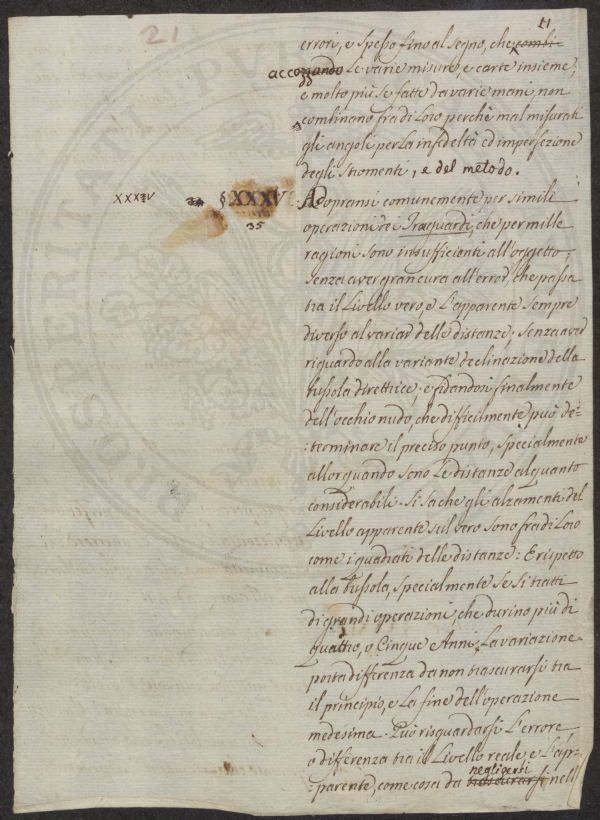 21
11
errori, e spesso fino al segno, che combi-
accozzando le varie misure, e carte insieme,
e molto più se fatte da varie mani, non
combinano fra di loro perchè mal misurati
gli angoli per la infedeltà ed imperfezione
degli stromenti, e del metodo.
XXXIV 34 § XXXV Adopransi comunemente per simili
35
operazioni dei Traguardi, che per mille
ragioni sono insufficienti all'oggetto,
senza aver gran cura all'error, che passa
tra il Livello vero, e l'apparente sempre
diverso al variar delle distanze; senza aver
riguardo alla variante declinazione della
bussola direttrice, e fidandosi finalmente
dell'occhio nudo, che difficilmente può de=
:terminare il preciso punto, specialmente
allor quando sono le distanze alquanto
considerabili. Si sa che gli alzamenti del
Livello apparente sul vero sono fra di loro
come i quadrati delle distanze: E rispetto
alla bussola, specialmente se si tratti
di grandi operazioni, che durino più di
quattro, o Cinque Anni, La variazione
porta differenza da non trascurarsi tra
il principio, e la fine dell'operazione
medesima. Può risguardarsi l'errore
o differenza tra il Livello reale, e l'ap=
negligerti
:parente, come cosa da trascurarsi nell'